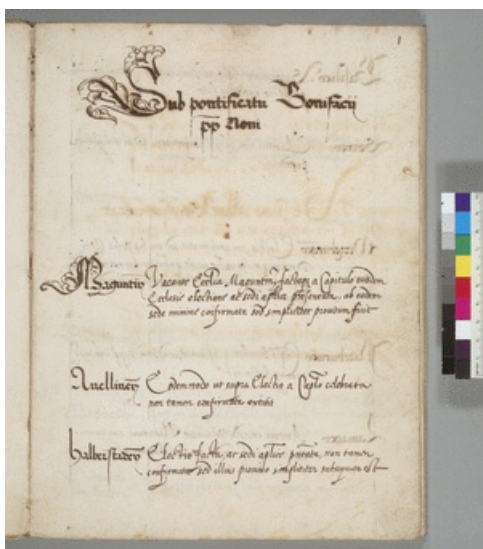 1
Sub pontificatu Bonifacij
pp Noni
Maguntin Vacante Ecclia Maguntin, factaq a Capitulo eiusdem
Ecclesie electione ac sedi aplica presentata, ab eadem
sede minime confirmata sed simpliciter provisum fuit
Avellinen Eodem modo ut supra Electio a Caplo celebrata
non tamen confirmata extitit
halberstaden Electio facta, ac sedi aplice pntata, non tamen
confirmata sed illius provisio simpliciter subsequuta est